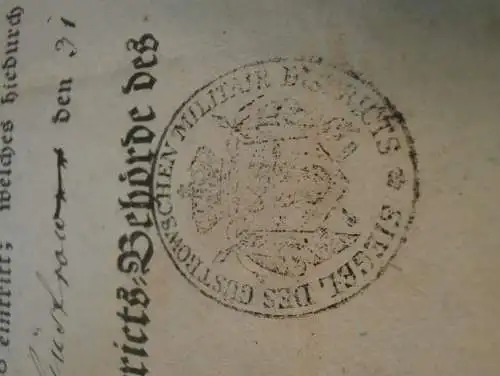 eintritt; welches hiedurch
Güstrow den 31
ricts-Behörde des
SIEGEL DES GÜSTROWSCHEN MILITAIR DISTRICTS